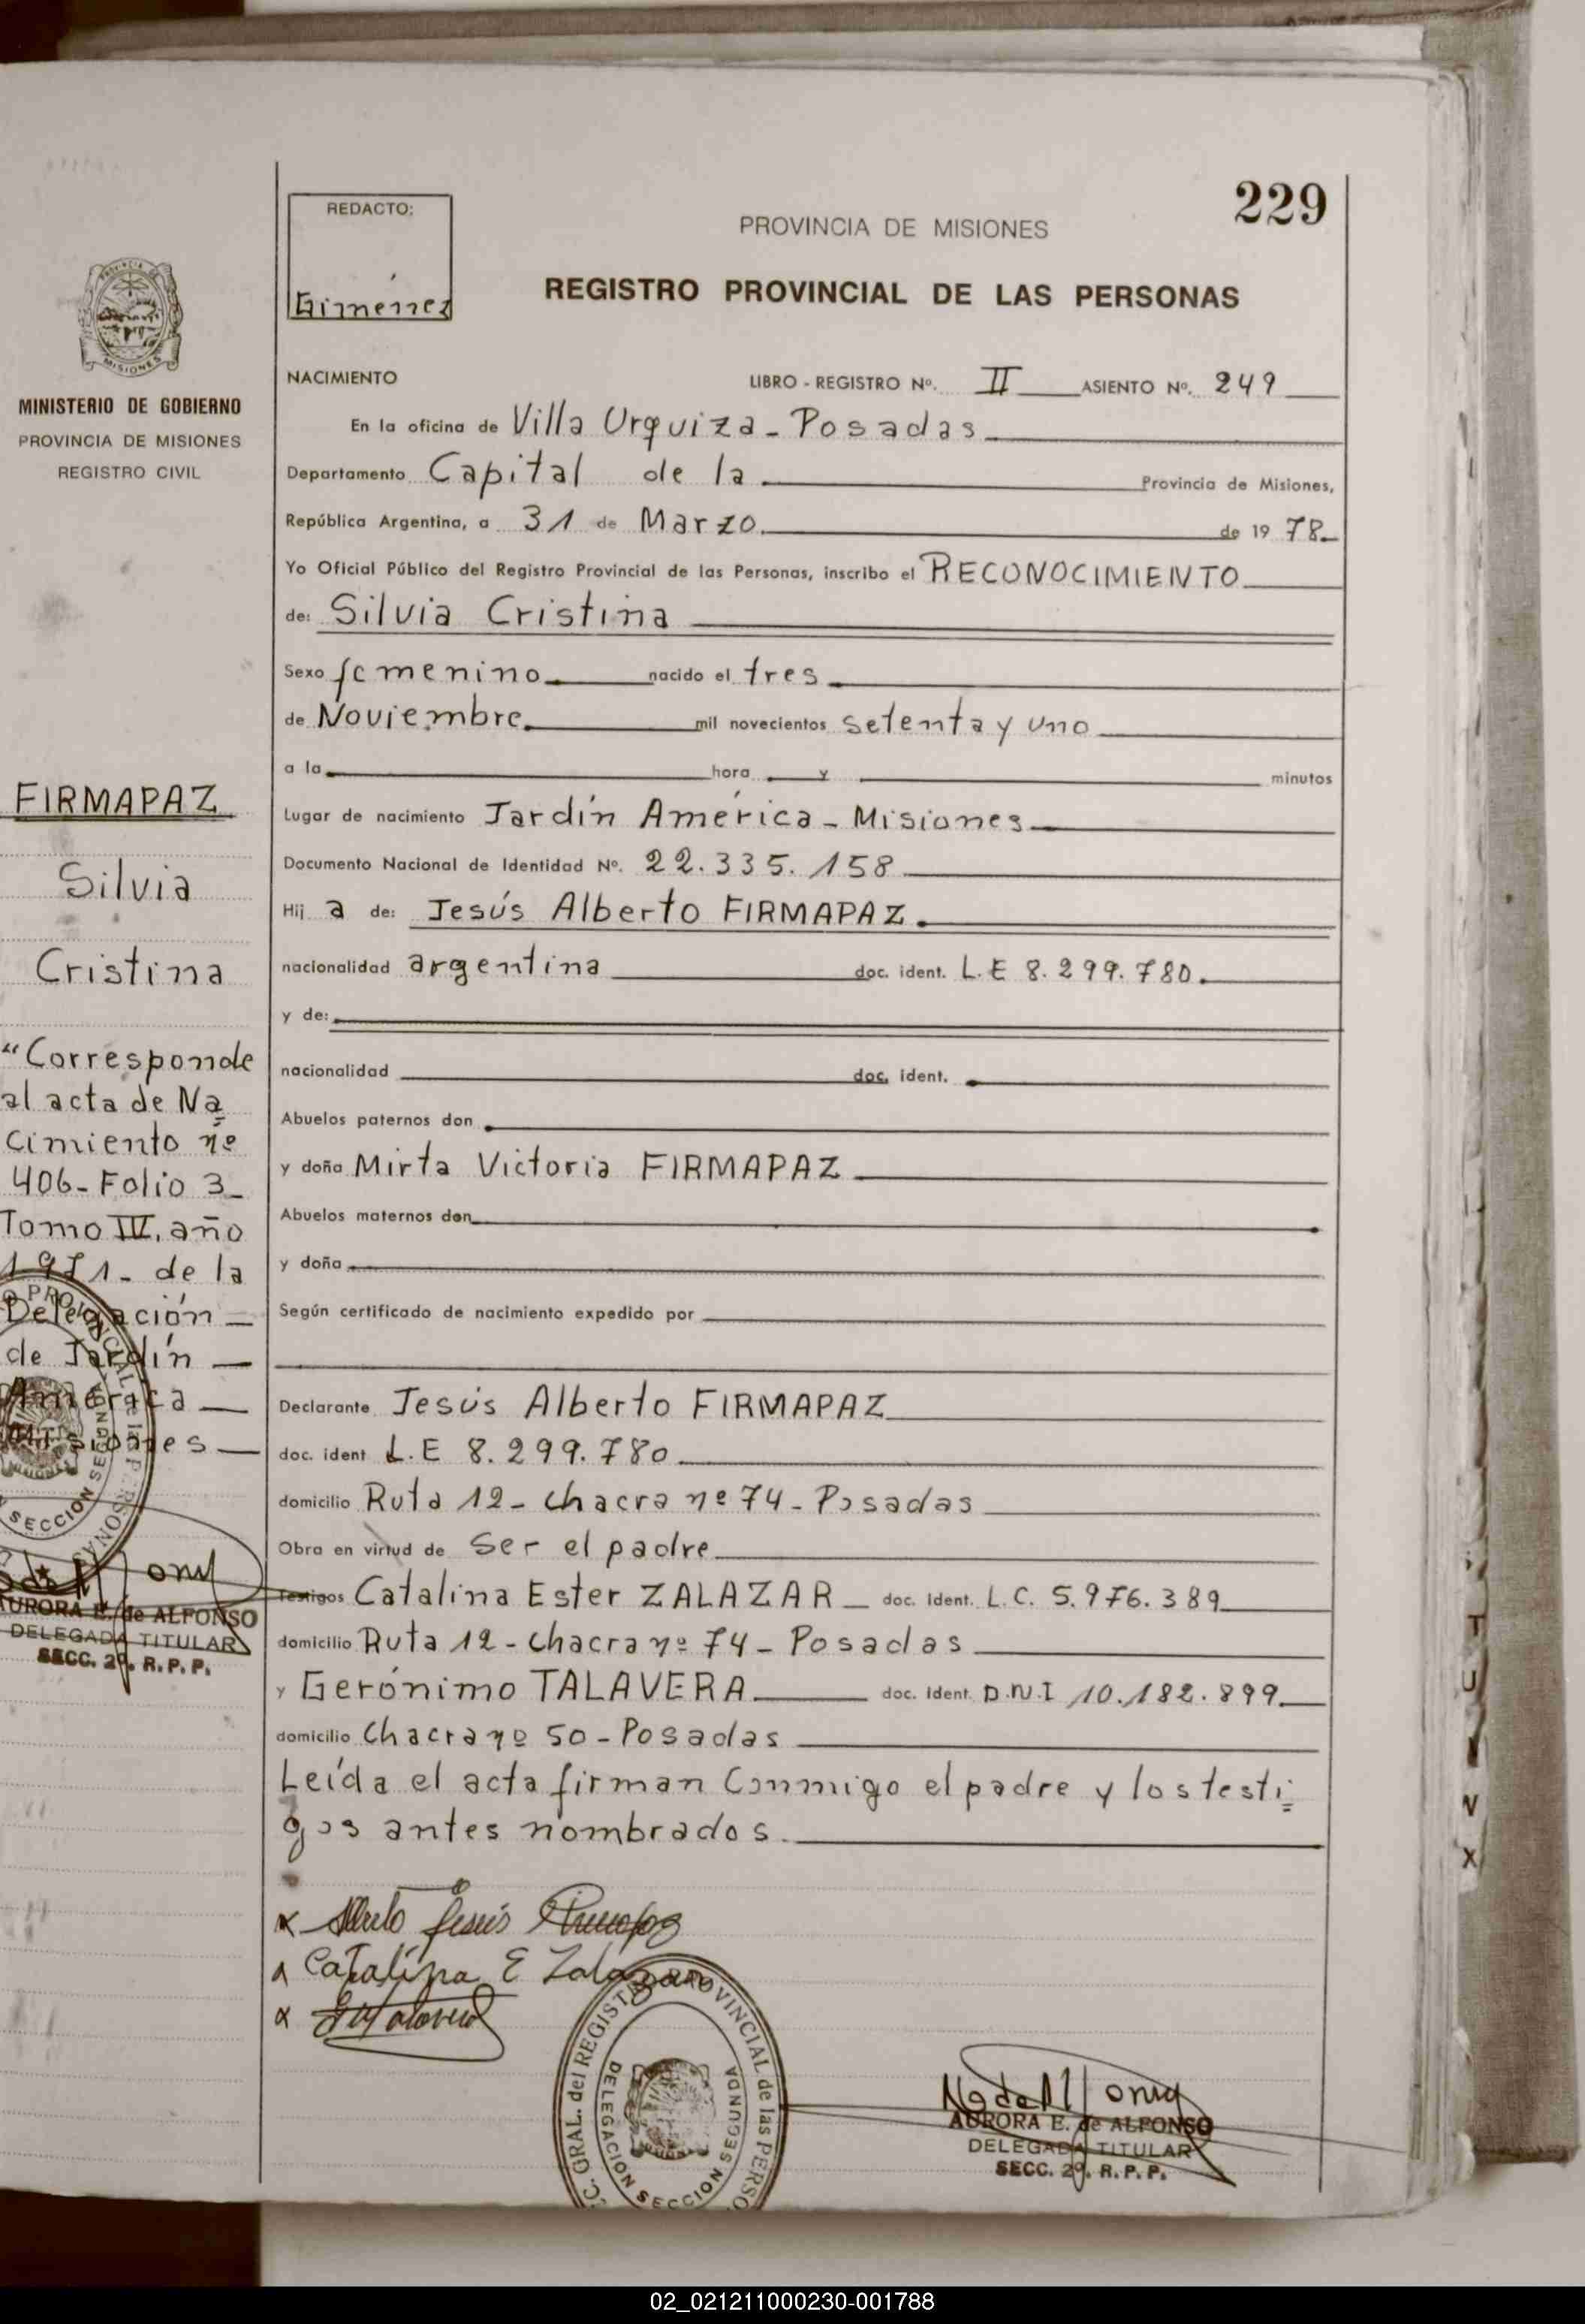 229
REDACTO:
Giménez
PROVINCIA DE MISIONES
REGISTRO PROVINCIAL DE LAS PERSONAS
MISIONES
MINISTERIO DE GOBIERNO
PROVINCIA DE MISIONES
REGISTRO CIVIL
FIRMAPAZ
Silvia
Cristina
"Corresponde
al acta de Na
cimiento nº
406- Folio 3-
Tomo IV. año
1971- de la
Delegación
de Jardín
América
Misiones
AURORA E. de ALFONSO
DELEGADA TITULAR
SECC. 2º. R. P. P.
NACIMIENTO LIBRO - REGISTRO Nº. II ASIENTO Nº. 249
En la oficina de Villa Urquiza - Posadas
Departamento Capital de la Provincia de Misiones,
República Argentina, a 31 de Marzo de 1978.
Yo Oficial Público del Registro Provincial de las Personas, inscribo el RECONOCIMIENTO
de: Silvia Cristina
Sexo femenino nacido el tres
de Noviembre mil novecientos setenta y uno
a la hora y minutos
Lugar de nacimiento Jardín América - Misiones
Documento Nacional de Identidad Nº. 22.335.158
Hij a de: Jesús Alberto FIRMAPAZ.
nacionalidad argentina doc. ident. L.E 8.299.780.
y de:
nacionalidad doc. ident.
Abuelos paternos don
y doña Mirta Victoria FIRMAPAZ
Abuelos maternos don
y doña
Según certificado de nacimiento expedido por
Declarante Jesús Alberto FIRMAPAZ
doc. ident L.E 8.299.780
domicilio Ruta 12 - chacra nº 74 - Posadas
Obra en virtud de ser el padre
Testigos Catalina Ester ZALAZAR - doc. Ident. L.C. 5.976.389
domicilio Ruta 12 - chacra nº 74 - Posadas
y Gerónimo TALAVERA doc. Ident. D.N.I 10.182.899
domicilio Chacra nº 50 - Posadas
Leída el acta firman conmigo el padre y los testi
gos antes nombrados.
Catalina E Zalazar
SECCION SEGUNDA
GRAL. del REGISTRO PROVINCIAL de las
DELEGACION SECCION SEGUNDA
AURORA E. de ALFONSO
DELEGADA TITULAR
SECC. 2º. R. P. P.
02_021211000230-001788